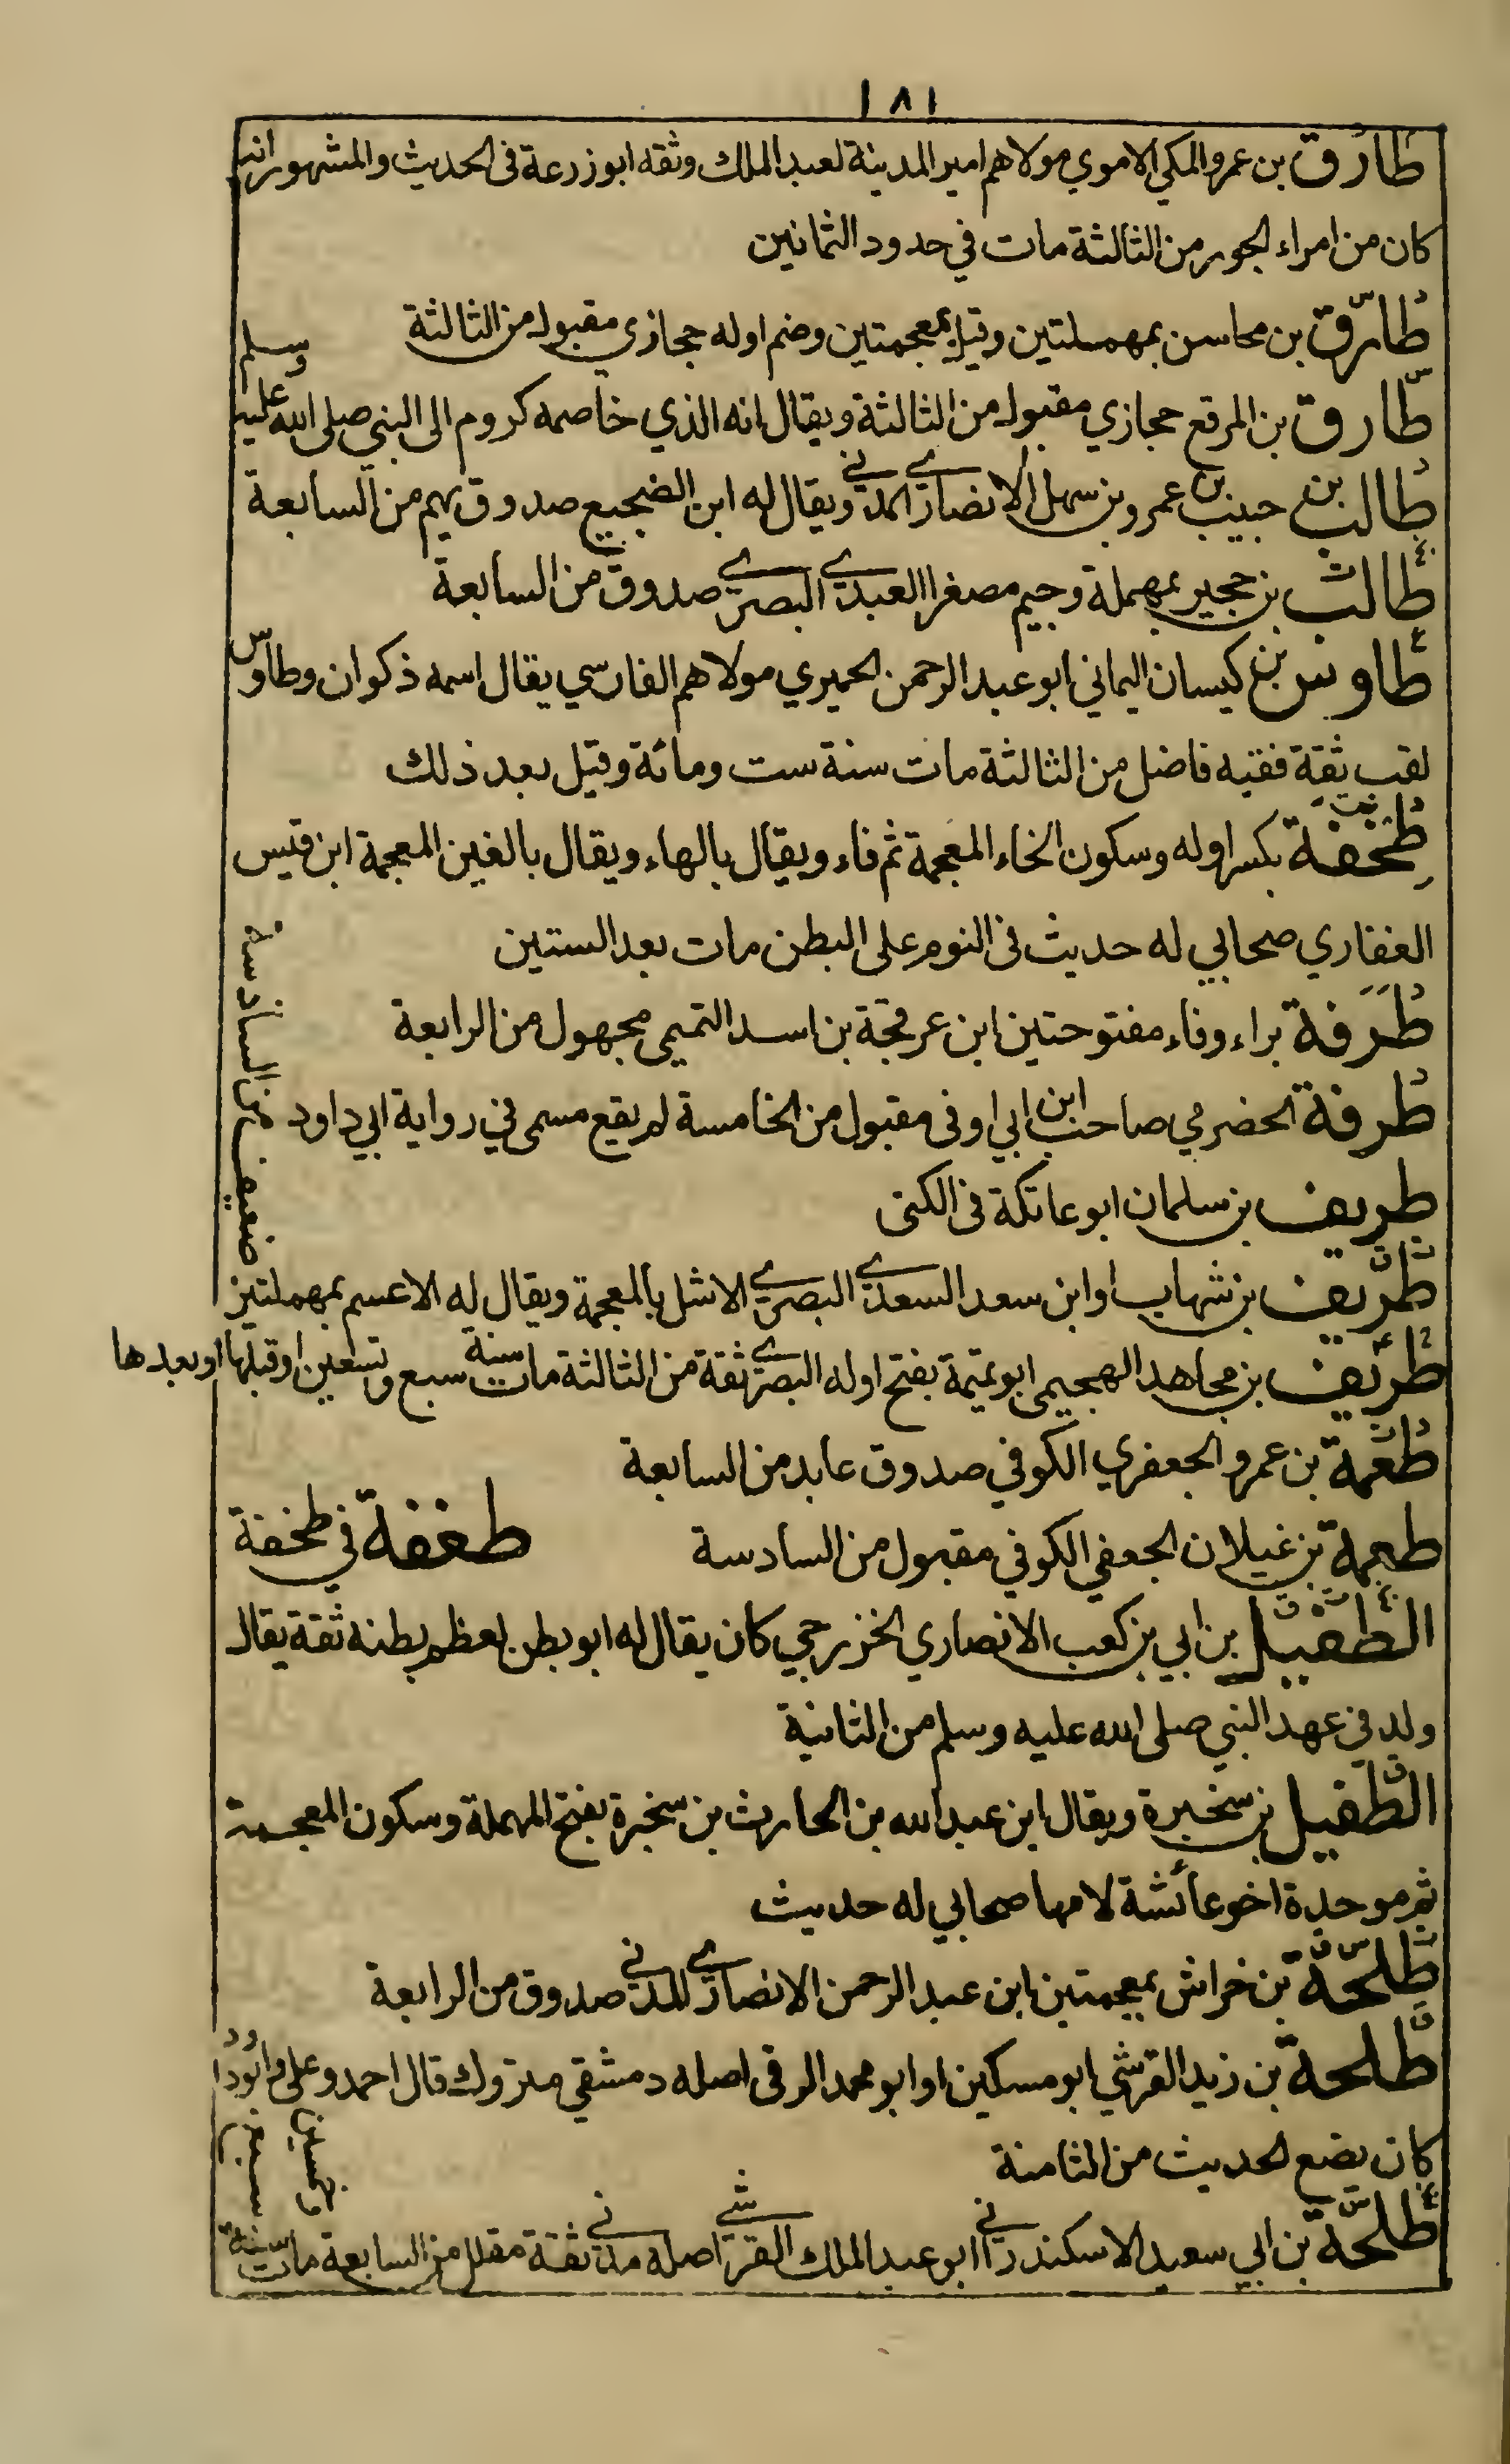 ١٨١
طارق بن عمرو المكي الاموي مولاهم امير المدينة لعبد الملك وثقه ابو زرعة في الحديث والمشهور انه
كان من امراء الجور من الثالثة مات في حدود الثمانين
طارق بن محاسن بمهملتين وقيل بمعجمتين وضم اوله حجازي مقبول من الثالثة
طارق بن المرقع حجازي مقبول من الثالثة ويقال انه الذي خاصمه كروم الى النبي صلى الله عليه وسلم
طالب بن حبيب بن عمرو بن سهل الانصاري المدني ويقال له ابن الضجيع صدوق يهم من السابعة
طالب بن حجير بمهملة وجيم مصغرا العبدي البصري صدوق من السابعة
طاوس بن كيسان اليماني ابو عبد الرحمن الحميري مولاهم الفارسي يقال اسمه ذكوان وطاوس
لقب ثقة فقيه فاضل من الثالثة مات سنة ست ومائة وقيل بعد ذلك
طخفة بكسر اوله وسكون الخاء المعجمة ثم فاء ويقال بالهاء ويقال بالغين المعجمة ابن قيس
الغفاري صحابي له حديث في النوم على البطن مات بعد الستين
طرفة براء وفاء مفتوحتين ابن عرفجة بن اسد التميمي مجهول من الرابعة
طرفة الحضرمي صاحب ابن ابي اوفى مقبول من الخامسة لم يقع مسمى في رواية ابي داود
طريف بن سلمان ابو عاتكة في الكنى
طريف بن شهاب او ابن سعد السعدي البصري الاشل بالمعجمة ويقال له الاعسم بمهملتين
ضعيف من السادسة
طريف بن مجاهد الهجيمي ابو تميمة بفتح اوله البصري ثقة من الثالثة مات سنة سبع وتسعين او قبلها او بعدها
طعمة بن عمرو الجعفري الكوفي صدوق عابد من السابعة
طعمة بن غيلان الجعفي الكوفي مقبول من السادسة طغفة في طخفة
الطفيل بن ابي بن كعب الانصاري الخزرجي كان يقال له ابو بطن لعظم بطنه ثقة يقال
ولد في عهد النبي صلى الله عليه وسلم من الثانية
الطفيل بن سخبرة ويقال ابن عبد الله بن الحارث بن سخبرة بفتح المهملة وسكون المعجمة
ثم موحدة اخو عائشة لامها صحابي له حديث
طلحة بن خراش بمعجمتين ابن عبد الرحمن الانصاري المدني صدوق من الرابعة
طلحة بن زيد القرشي ابو مسكين او ابو محمد الرقي اصله دمشقي متروك قال احمد وعلي وابو داود
كان يضع الحديث من الثامنة
طلحة بن ابي سعيد الاسكندراني ابو عبد الملك القرشي اصله مدني ثقة مقل من السابعة مات سنة
سبع وخمسين